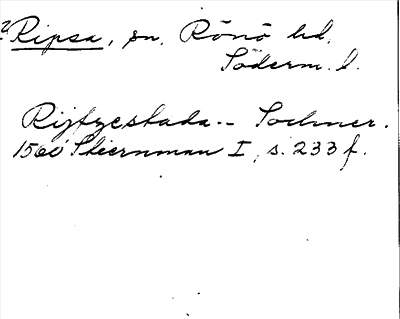 ? Ripsa, sn. Rönö hd.
Söderm. l.
Rijtzestada -- Sodmer.
1560 Stiernman I, s. 233 f.